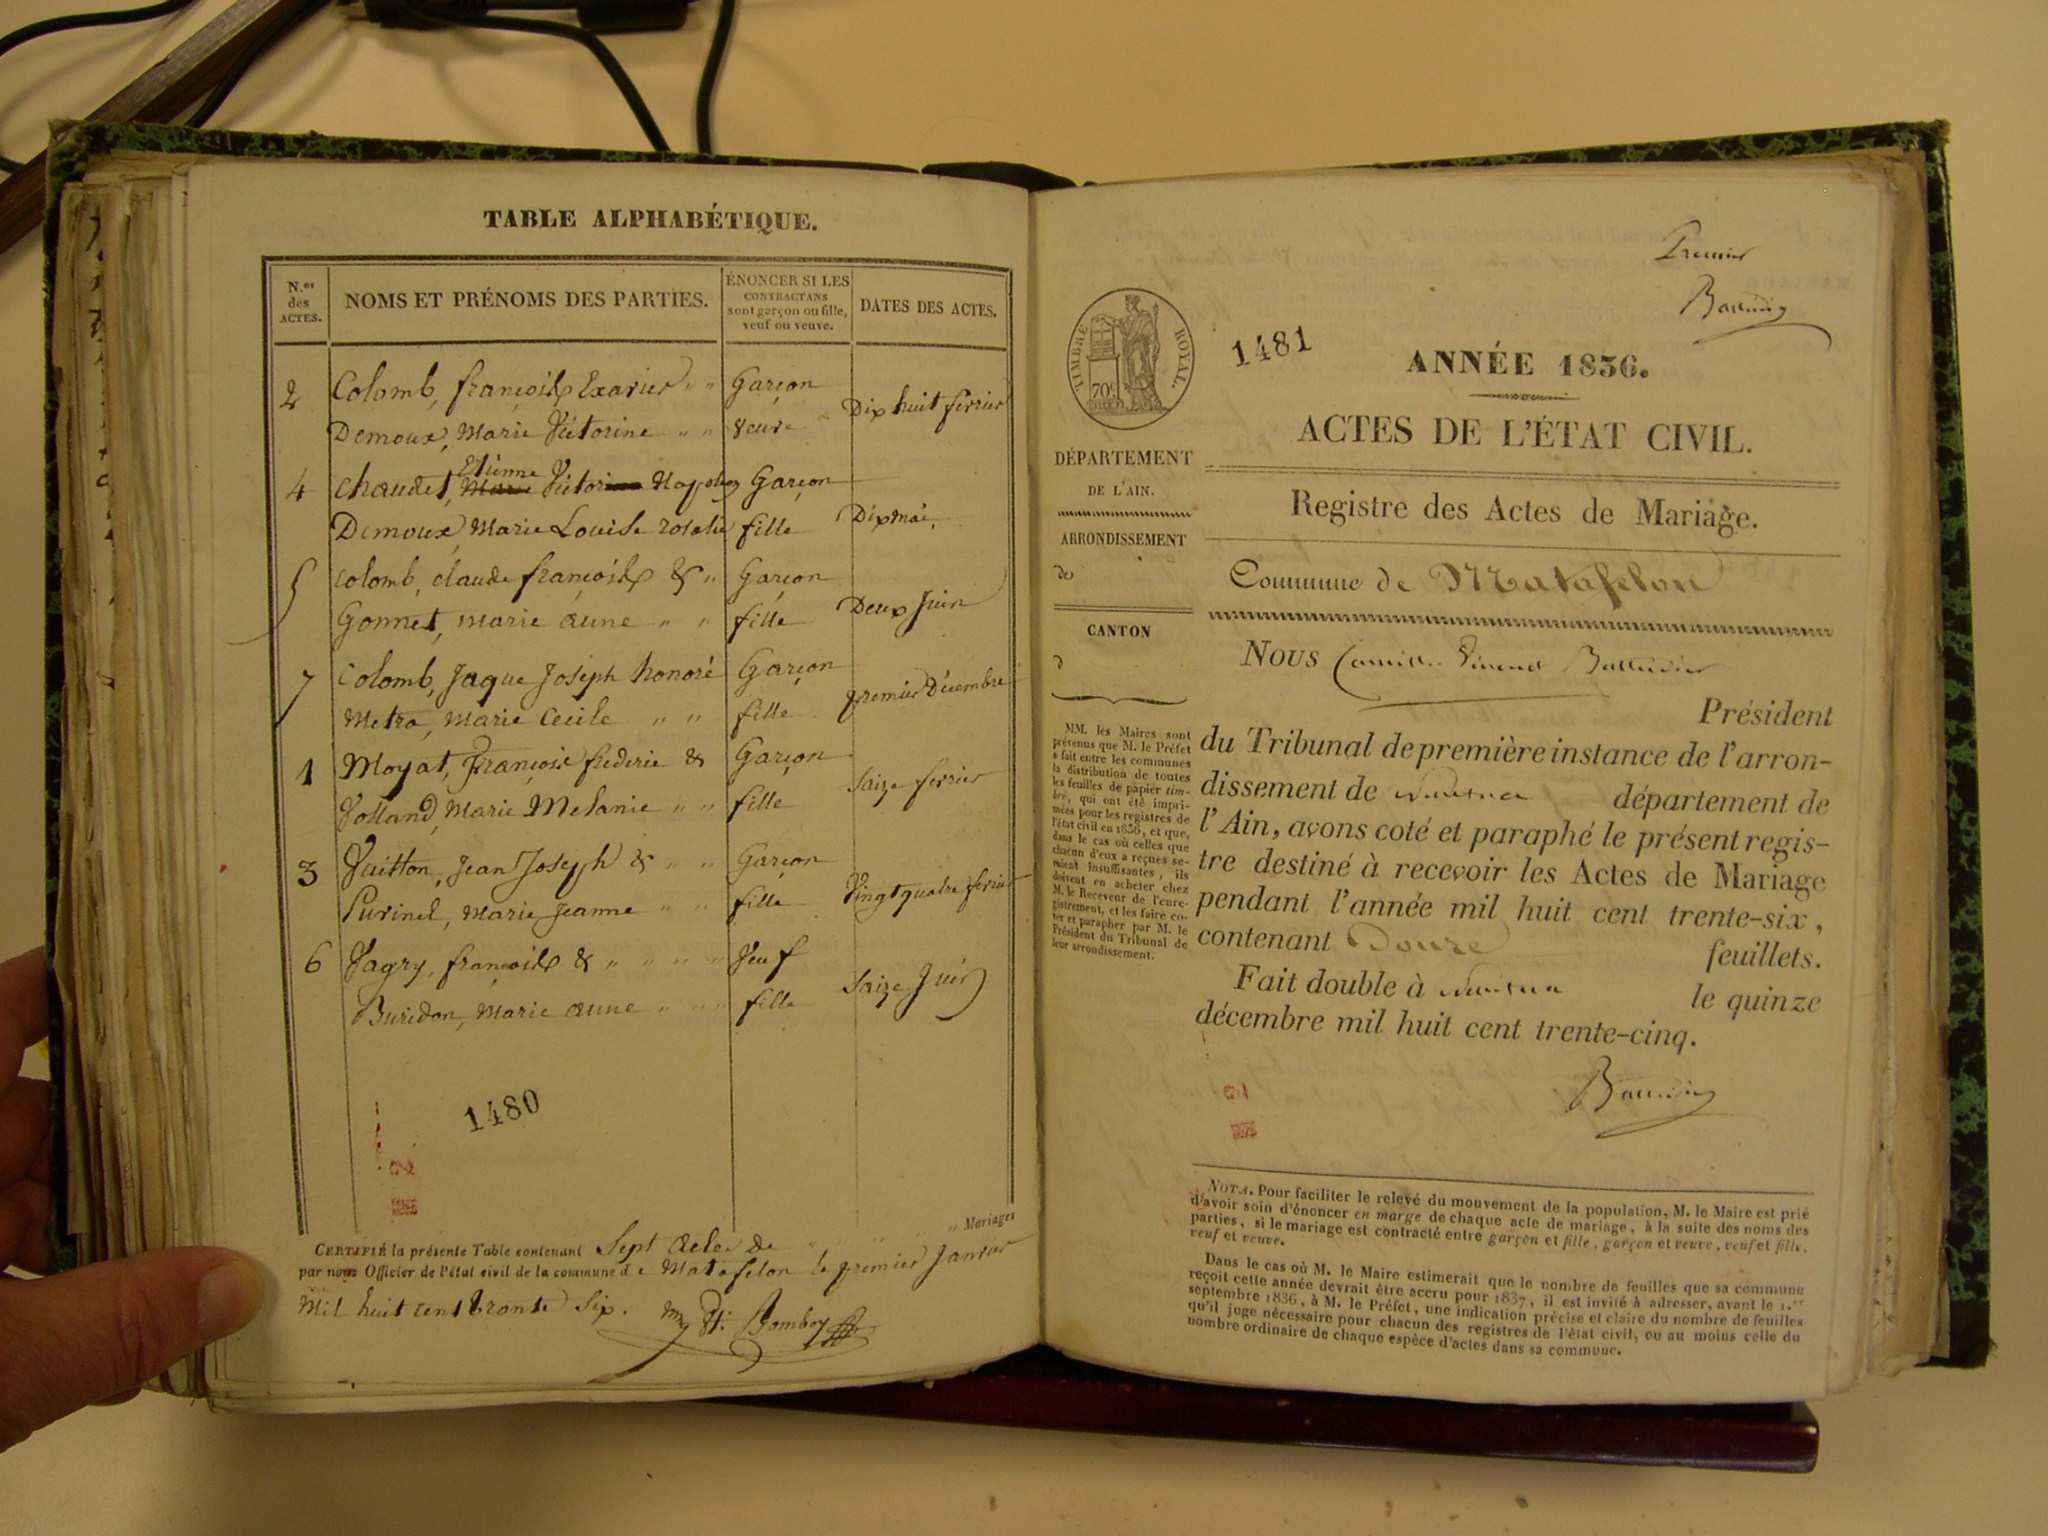 TABLE ALPHABÉTIQUE.
N.os des ACTES.
NOMS ET PRÉNOMS DES PARTIES.
ÉNONCER SI LES
CONTRACTANS
sont garçon ou fille,
veuf ou veuve.
DATES DES ACTES.
2 Colomb, françois Exavier " " Garçon
Dix huit fevrier
Demoux, Marie Victorine " " veuve
4 Chaudet, Etienne Marie Victorine Napoleon Garçon
Demoux, Marie Louise rosalie fille Dix mai.
5 Colomb, claude françois & " Garçon
Gonnet, marie anne " " fille Deux Juin
7 Colomb, Jaque Joseph honoré Garçon
Metra, Marie Cecile " " fille premier Décembre
1 Moyat, François frederic & Garçon
Volland, Marie Melanie " " fille Saize fevrier
3 Vuitton, Jean Joseph & " " Garçon
Purinel, Marie Jeanne " " fille Vingt quatre fevrier
6 Vagry, françois & " " " " Veuf
Buridon, Marie anne " " " fille Saize Juin
1480
" Mariages
CERTIFIÉ la présente Table contenant Sept Actes de " " " " "
par nous Officier de l'état civil de la commune de Matafelon le premier Janvier
Mil huit cent trente Six.
Premier
1481
TIMBRE ROYAL.
70c
ANNÉE 1836.
ACTES DE L'ÉTAT CIVIL.
DÉPARTEMENT
DE L'AIN.
ARRONDISSEMENT
de
CANTON
d
Registre des Actes de Mariage.
Commune de Matafelon
Nous Camille Vincent
Président
du Tribunal de première instance de l'arron-
dissement de Nantua département de
l'Ain, avons coté et paraphé le présent regis-
tre destiné à recevoir les Actes de Mariage
pendant l'année mil huit cent trente-six,
contenant Douze feuillets.
Fait double à Nantua le quinze
décembre mil huit cent trente-cinq.
MM. les Maires sont
prévenus que M. le Préfet
a fait entre les communes
la distribution de toutes
les feuilles de papier tim-
bré, qui ont été impri-
mées pour les registres de
l'état civil en 1836, et que,
dans le cas où celles que
chacun d'eux a reçues se-
raient insuffisantes, ils
doivent en acheter chez
M. le Receveur de l'enre-
gistrement, et les faire co-
ter et parapher par M. le
Président du Tribunal de
leur arrondissement.
NOTA. Pour faciliter le relevé du mouvement de la population, M. le Maire est prié
d'avoir soin d'énoncer en marge de chaque acte de mariage, à la suite des noms des
parties, si le mariage est contracté entre garçon et fille, garçon et veuve, veuf et fille,
veuf et veuve.
Dans le cas où M. le Maire estimerait que le nombre de feuilles que sa commune
reçoit cette année devrait être accru pour 1837, il est invité à adresser, avant le 1.er
septembre 1836, à M. le Préfet, une indication précise et claire du nombre de feuilles
qu'il juge nécessaire pour chacun des registres de l'état civil, ou au moins celle du
nombre ordinaire de chaque espèce d'actes dans sa commune.